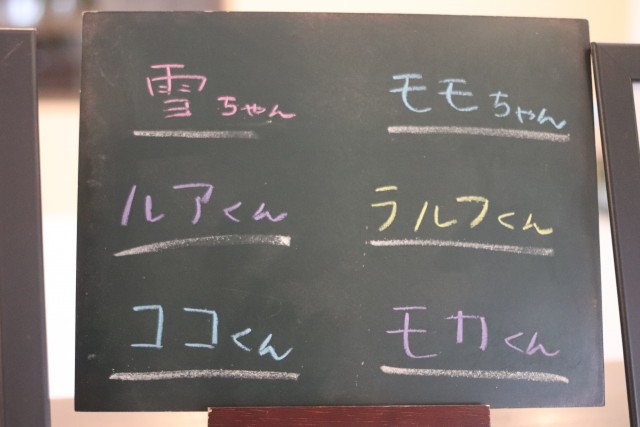 雪ちゃん
モモちゃん
ルアくん
ラルフくん
ココくん
モカくん